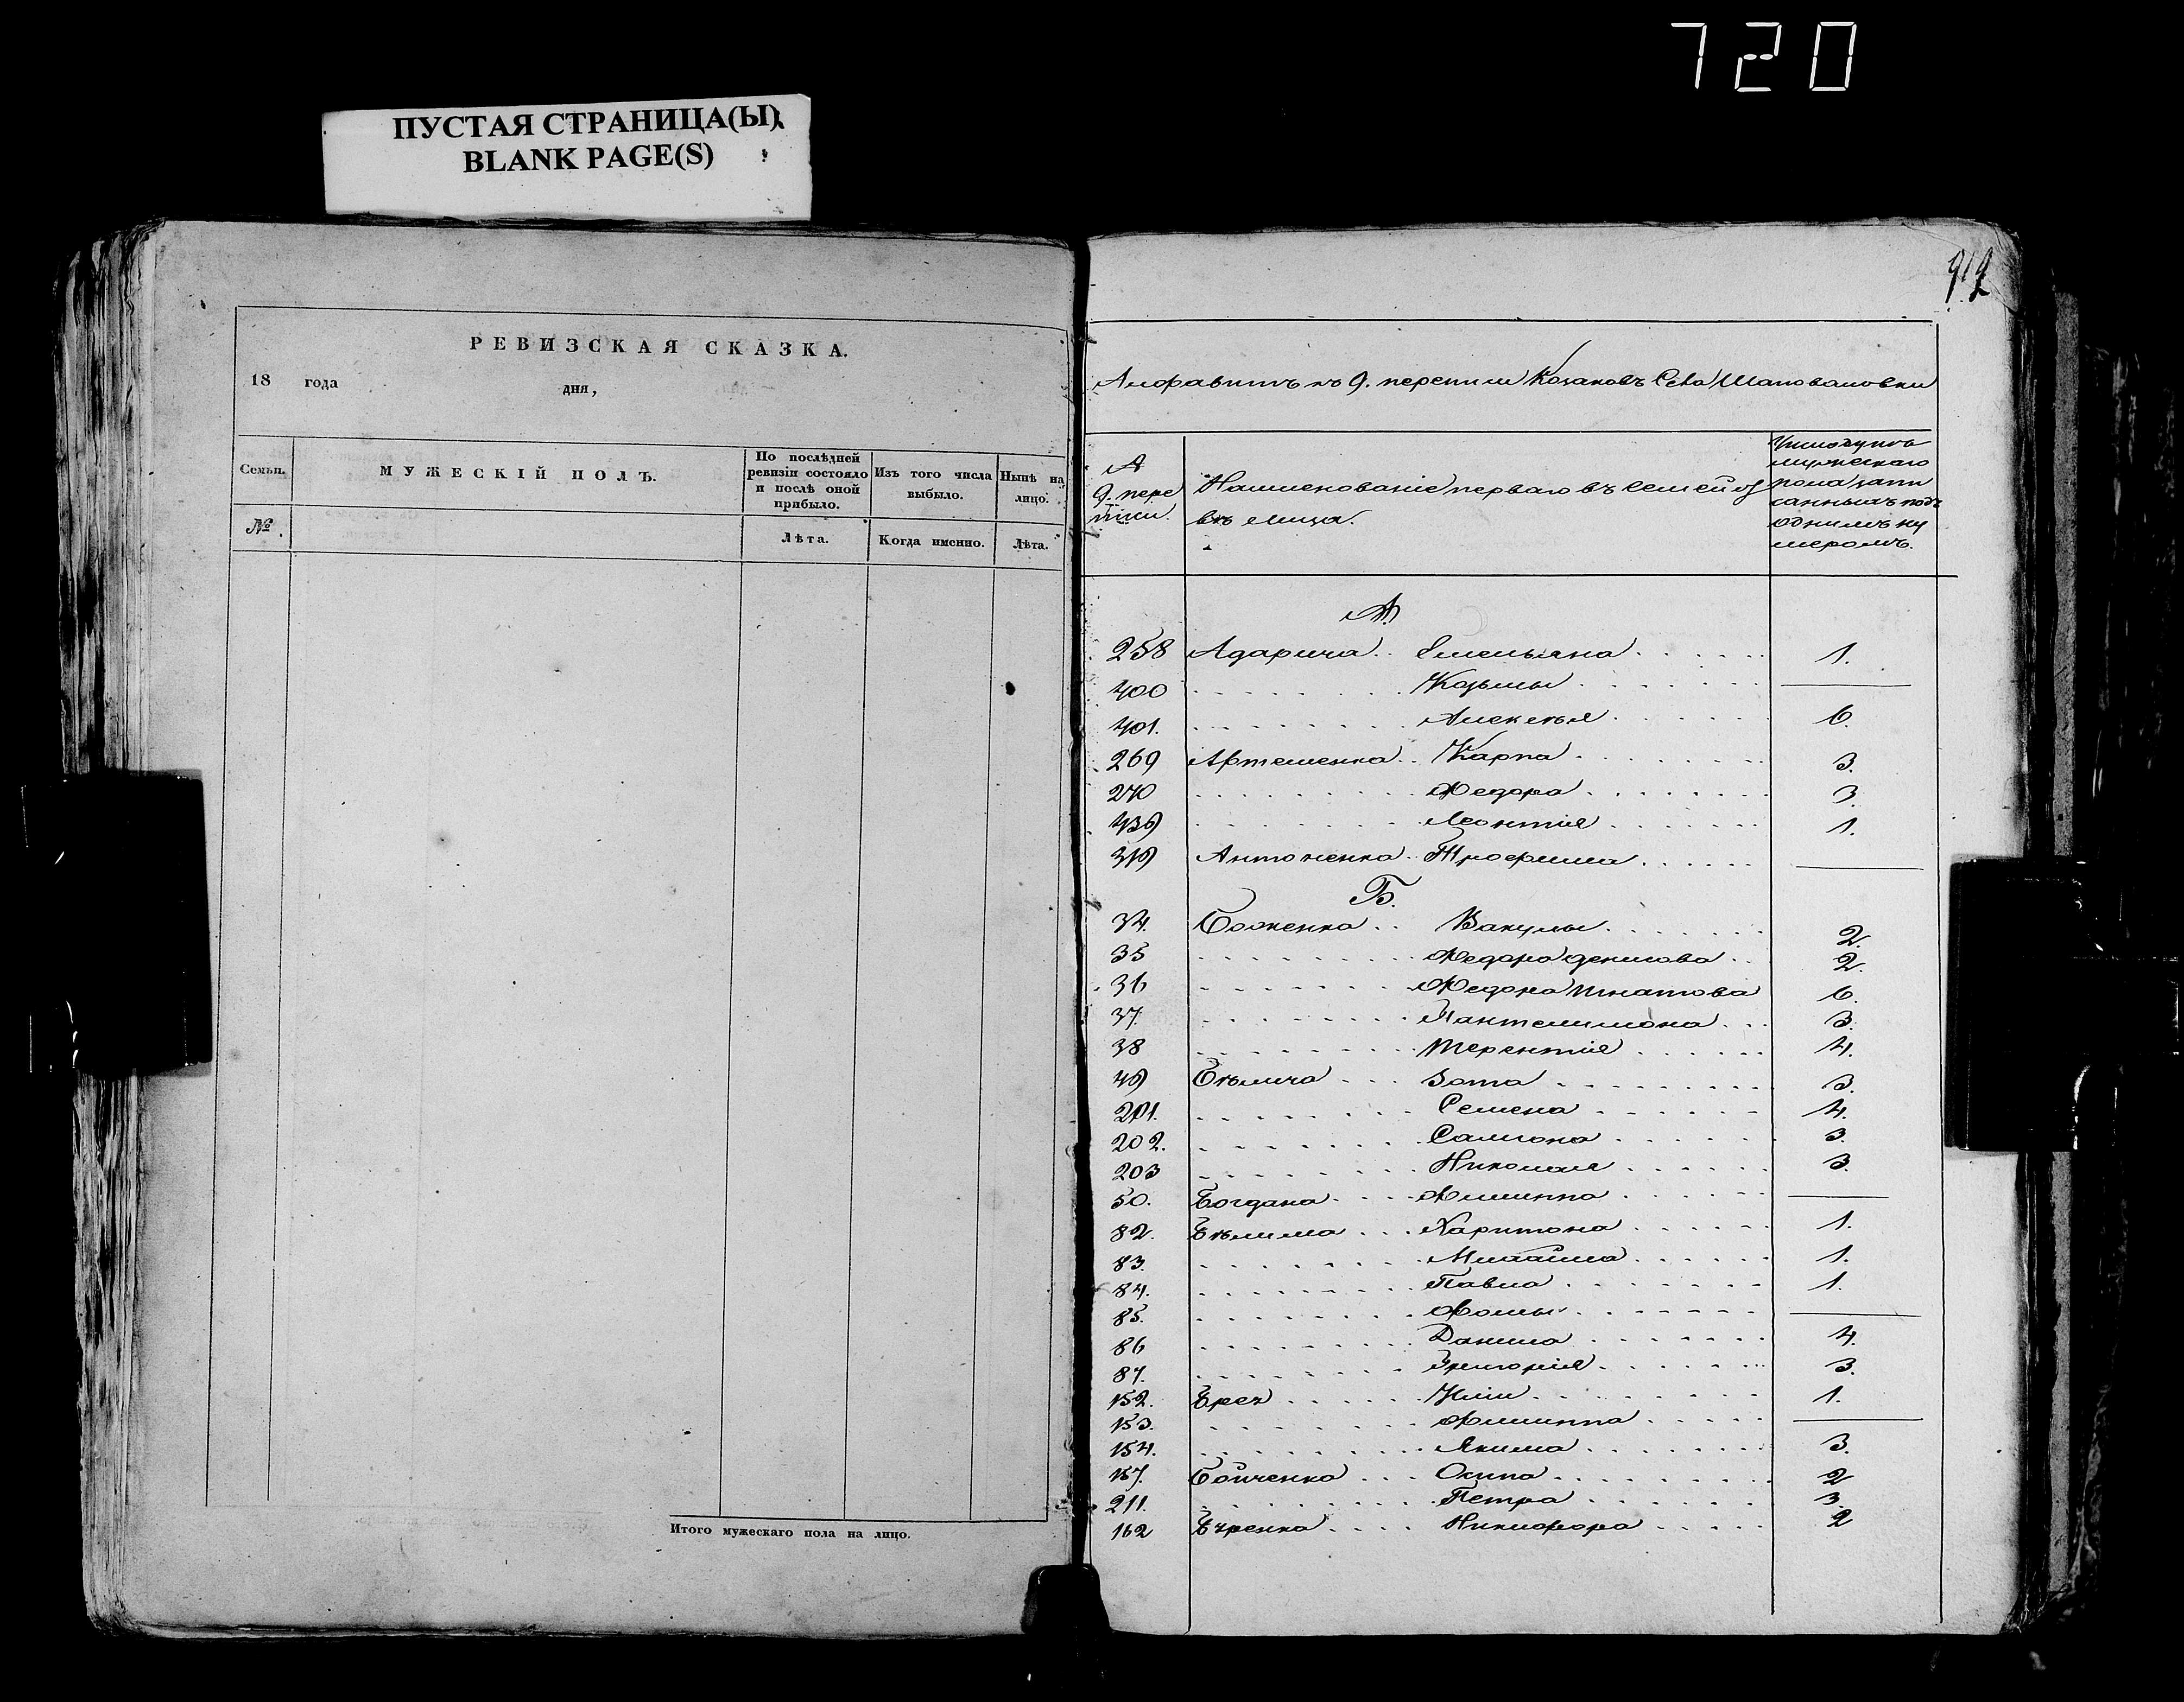 720
ПУСТАЯ СТРАНИЦА(Ы)
BLANK PAGE(S)
РЕВИЗСКАЯ СКАЗКА.
18 года дня,
Семьи. МУЖЕСКІЙ ПОЛЪ. По послѣдней ревизіи состояло и послѣ оной прибыло. Изъ того числа выбыло. Нынѣ на лицо.
№ Лѣта. Когда именно. Лѣта.
Итого мужескаго пола на лицо.
Алфавитъ къ 9. переписи Козаковъ Села Шаповаловки
9. пере
писи.
Наименованіе перваго въ семейст
вѣ лица.
Число душъ
мужескаго
пола запи
санныхъ подъ
однимъ ну
меромъ.
А
258 Адарича .. Емельяна 1.
400 Козьмы —
401. Алексѣя 6.
269 Артеменка .. Карпа 3.
270 Федора 3.
439 Леонтія 1.
319 Антоненка .. Трофима —
Б.
34. Боженка .. Вакулы 2.
35 Федора Денисова 2.
36 Федора Игнатова 6.
37. Пантелимона 3.
38 Терентія 4.
49 Бѣлича ... Зота 3.
201. Семена 4.
202. Самсона 3.
203 Николая 3.
50. Богдана Филиппа —
82. Бѣлима ... Харитона 1.
83. Михайла 1.
84. Павла 1.
85. Фомы —
86 Данила 4.
87. Григорія 3.
152. Брех Иліи 1.
153. Филиппа —
154. Якима 3.
157. Бойченка ... Осипа 2
211. Петра 3.
162 Никифора 2